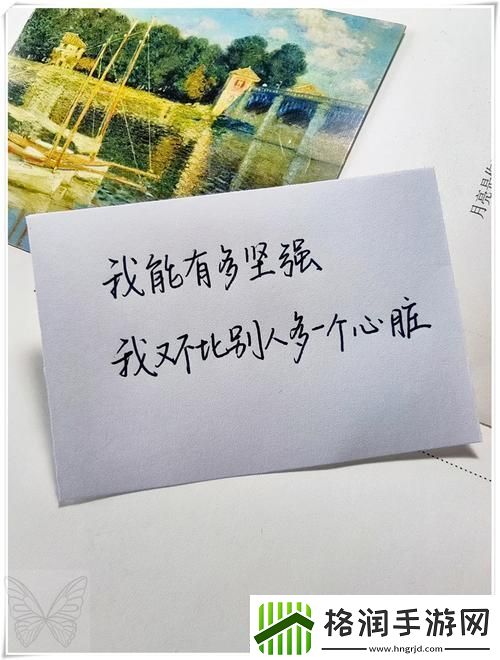 我能有多坚强
我又不比别人多一个心脏
月亮是
格润手游网
www.hngrjd.com